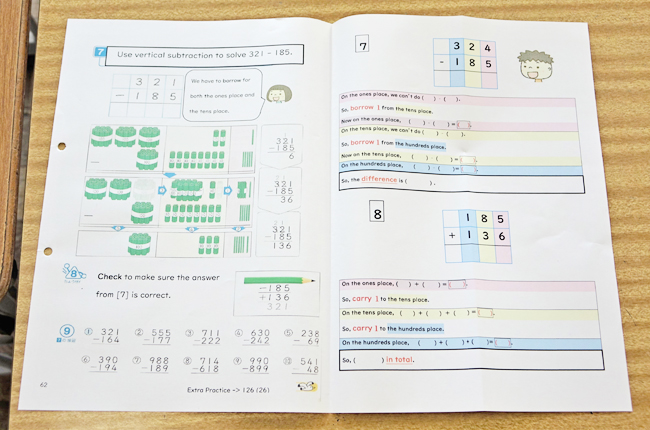 7 Use vertical subtraction to solve 321 - 185.
3 2 1
- 1 8 5
We have to borrow for
both the ones place and
the tens place.
321
-185
6
321
-185
36
321
-185
136
8
Check to make sure the answer
from [7] is correct.
-185
+136
321
9
① 321 ② 555 ③ 711 ④ 630 ⑤ 238
-164 -177 -222 -242 - 69
⑥ 390 ⑦ 988 ⑧ 714 ⑨ 990 ⑩ 541
-194 -189 -618 -899 - 48
62
Extra Practice -> 126 (26)
7
3 2 4
- 1 8 5
On the ones place, we can't do ( ) - ( ).
So, borrow 1 from the tens place.
Now on the ones place, ( ) - ( ) = ( ).
On the tens place, we can't do ( ) - ( ).
So, borrow 1 from the hundreds place.
Now on the tens place, ( ) - ( ) = ( ).
On the hundreds place, ( ) - ( ) = ( ).
So, the difference is ( ).
8
1 8 5
+ 1 3 6
On the ones place, ( ) + ( ) = ( ).
So, carry 1 to the tens place.
On the tens place, ( ) + ( ) + ( ) = ( ).
So, carry 1 to the hundreds place.
On the hundreds place, ( ) + ( ) + ( ) = ( ).
So, ( ) in total.